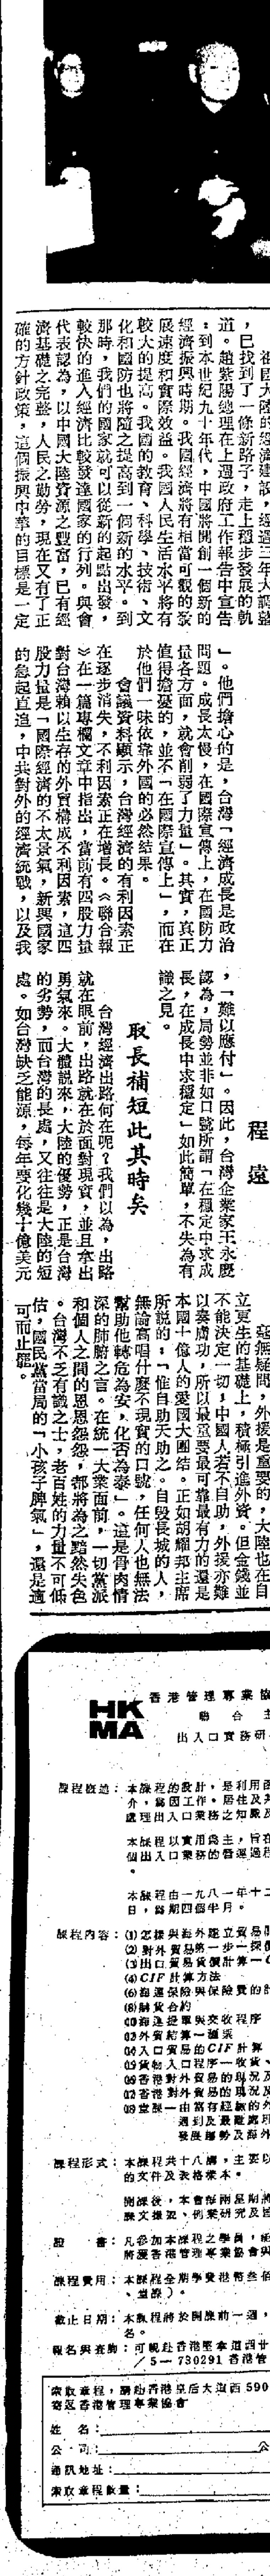 祖國大陸的經濟建設，經過三年大調整
，已找到了一條新路子，走上穩步發展的軌
道。趙紫陽總理在上週政府工作報告中宣告
：到本世紀九十年代，中國將開創一個新的
經濟振興時期。我國經濟將有相當可觀的發
展速度和實際效益。我國人民生活水平將有
較大的提高。我國的教育、科學、技術、文
化和國防也將隨之提高到一個新的水平。到
那時，我們的國家就可以從新的起點出發，
較快的進入經濟比較發達國家的行列。與會
代表認為，以中國大陸資源之豐富，已有經
濟基礎之完整，人民之勤勞，現在又有了正
確的方針政策，這個振興中華的目標是一定
」。他們擔心的是，台灣「經濟成長是政治
問題。成長太慢，在國際宣傳上，在國防力
量各方面，就會削弱了力量」。其實，真正
值得擔憂的，並不「在國際宣傳上」，而在
於他們一味依靠外國的必然結果。
會議資料顯示，台灣經濟的有利因素正
在逐步消失，不利因素正在增長。《聯合報
》在一篇專欄文章中指出，當前有四股力量
對台灣賴以生存的外貿構成不利因素，這四
股力量是「國際經濟的不太景氣，新興國家
的急起直追，中共對外的經濟統戰，以及我
程遠
，「難以應付」。因此，台灣企業家王永慶
認為，局勢並非如口號所謂「在穩定中求成
長，在成長中求穩定」如此簡單，不失為有
識之見。
取長補短此其時矣
台灣經濟出路何在呢？我們以為，出路
就在眼前，出路就在於面對現實，並且拿出
勇氣來。大體說來，大陸的優勢，正是台灣
的劣勢，而台灣的長處，又往往是大陸的短
處。如台灣缺乏能源，每年要化幾十億美元
毫無疑問，外援是重要的，大陸也在自
立更生的基礎上，積極引進外資。但金錢並
不能決定一切，中國人若不自助，外援亦難
以奏膚功，所以最重要最可靠最有力的還是
本國十億人的愛國大團結。正如胡耀邦主席
所說的：「惟自助天助之。自毀長城的人，
無論高唱什麼不現實的口號，任何人也無法
幫助他轉危為安，化否為泰」。這是骨肉情
深的肺腑之言。在統一大業面前，一切黨派
和個人之間的恩恩怨怨，都將為之黯然失色
。台灣不乏有識之士，老百姓的力量不可低
估，國民黨當局的「小孩子脾氣」，還是適
可而止罷。
HK
MA
香港管理專業協
聯合主
出入口實務研
課程概述：本課程的設計，是利用函
介，為因工作。居住及其
處理出入口業務之知識及
本課程以實用為主，旨在
個出入口業務的營運過程
。
本課程由一九八一年十二
日，為期四個半月。
課程內容：(1)怎樣與海外建立貿易關
(2)對外貿易第一步一探價
(3)出口貿易貨價計算一C
(4)CIF計算方法
(6)海運保險與保險費的計
(8)購貨合約
(10)海運提單與交收程序
(12)外貿結算一滙票
(14)入口貿易的CIF計算
(15)貨物入口程序一收貨、
(16)香港對外貿易的現況及
(17)香港對外貿易的現況及
(18)堂課一由富有經驗的外
遇到及最難處理
發展趨勢及海外
課程形式：本課程共十八講，主要以
的文件及表格樣本。
開課後，本會每兩星期將
課文撮要、例案研究及
證書：凡參加本課程之學員，
將獲香港管理專業協會與
課程費用：本課程全期學費港幣叁佰
、堂課）。
截止日期：本教程將於開課前一週，
名。
報名與查詢：可親赴香港堅拿道西廿
/5—730291香港管
索取章程，請赴香港皇后大道西590
寄返香港管理專業協會
姓名：
公司：公
通訊地址：
索取章程數量：